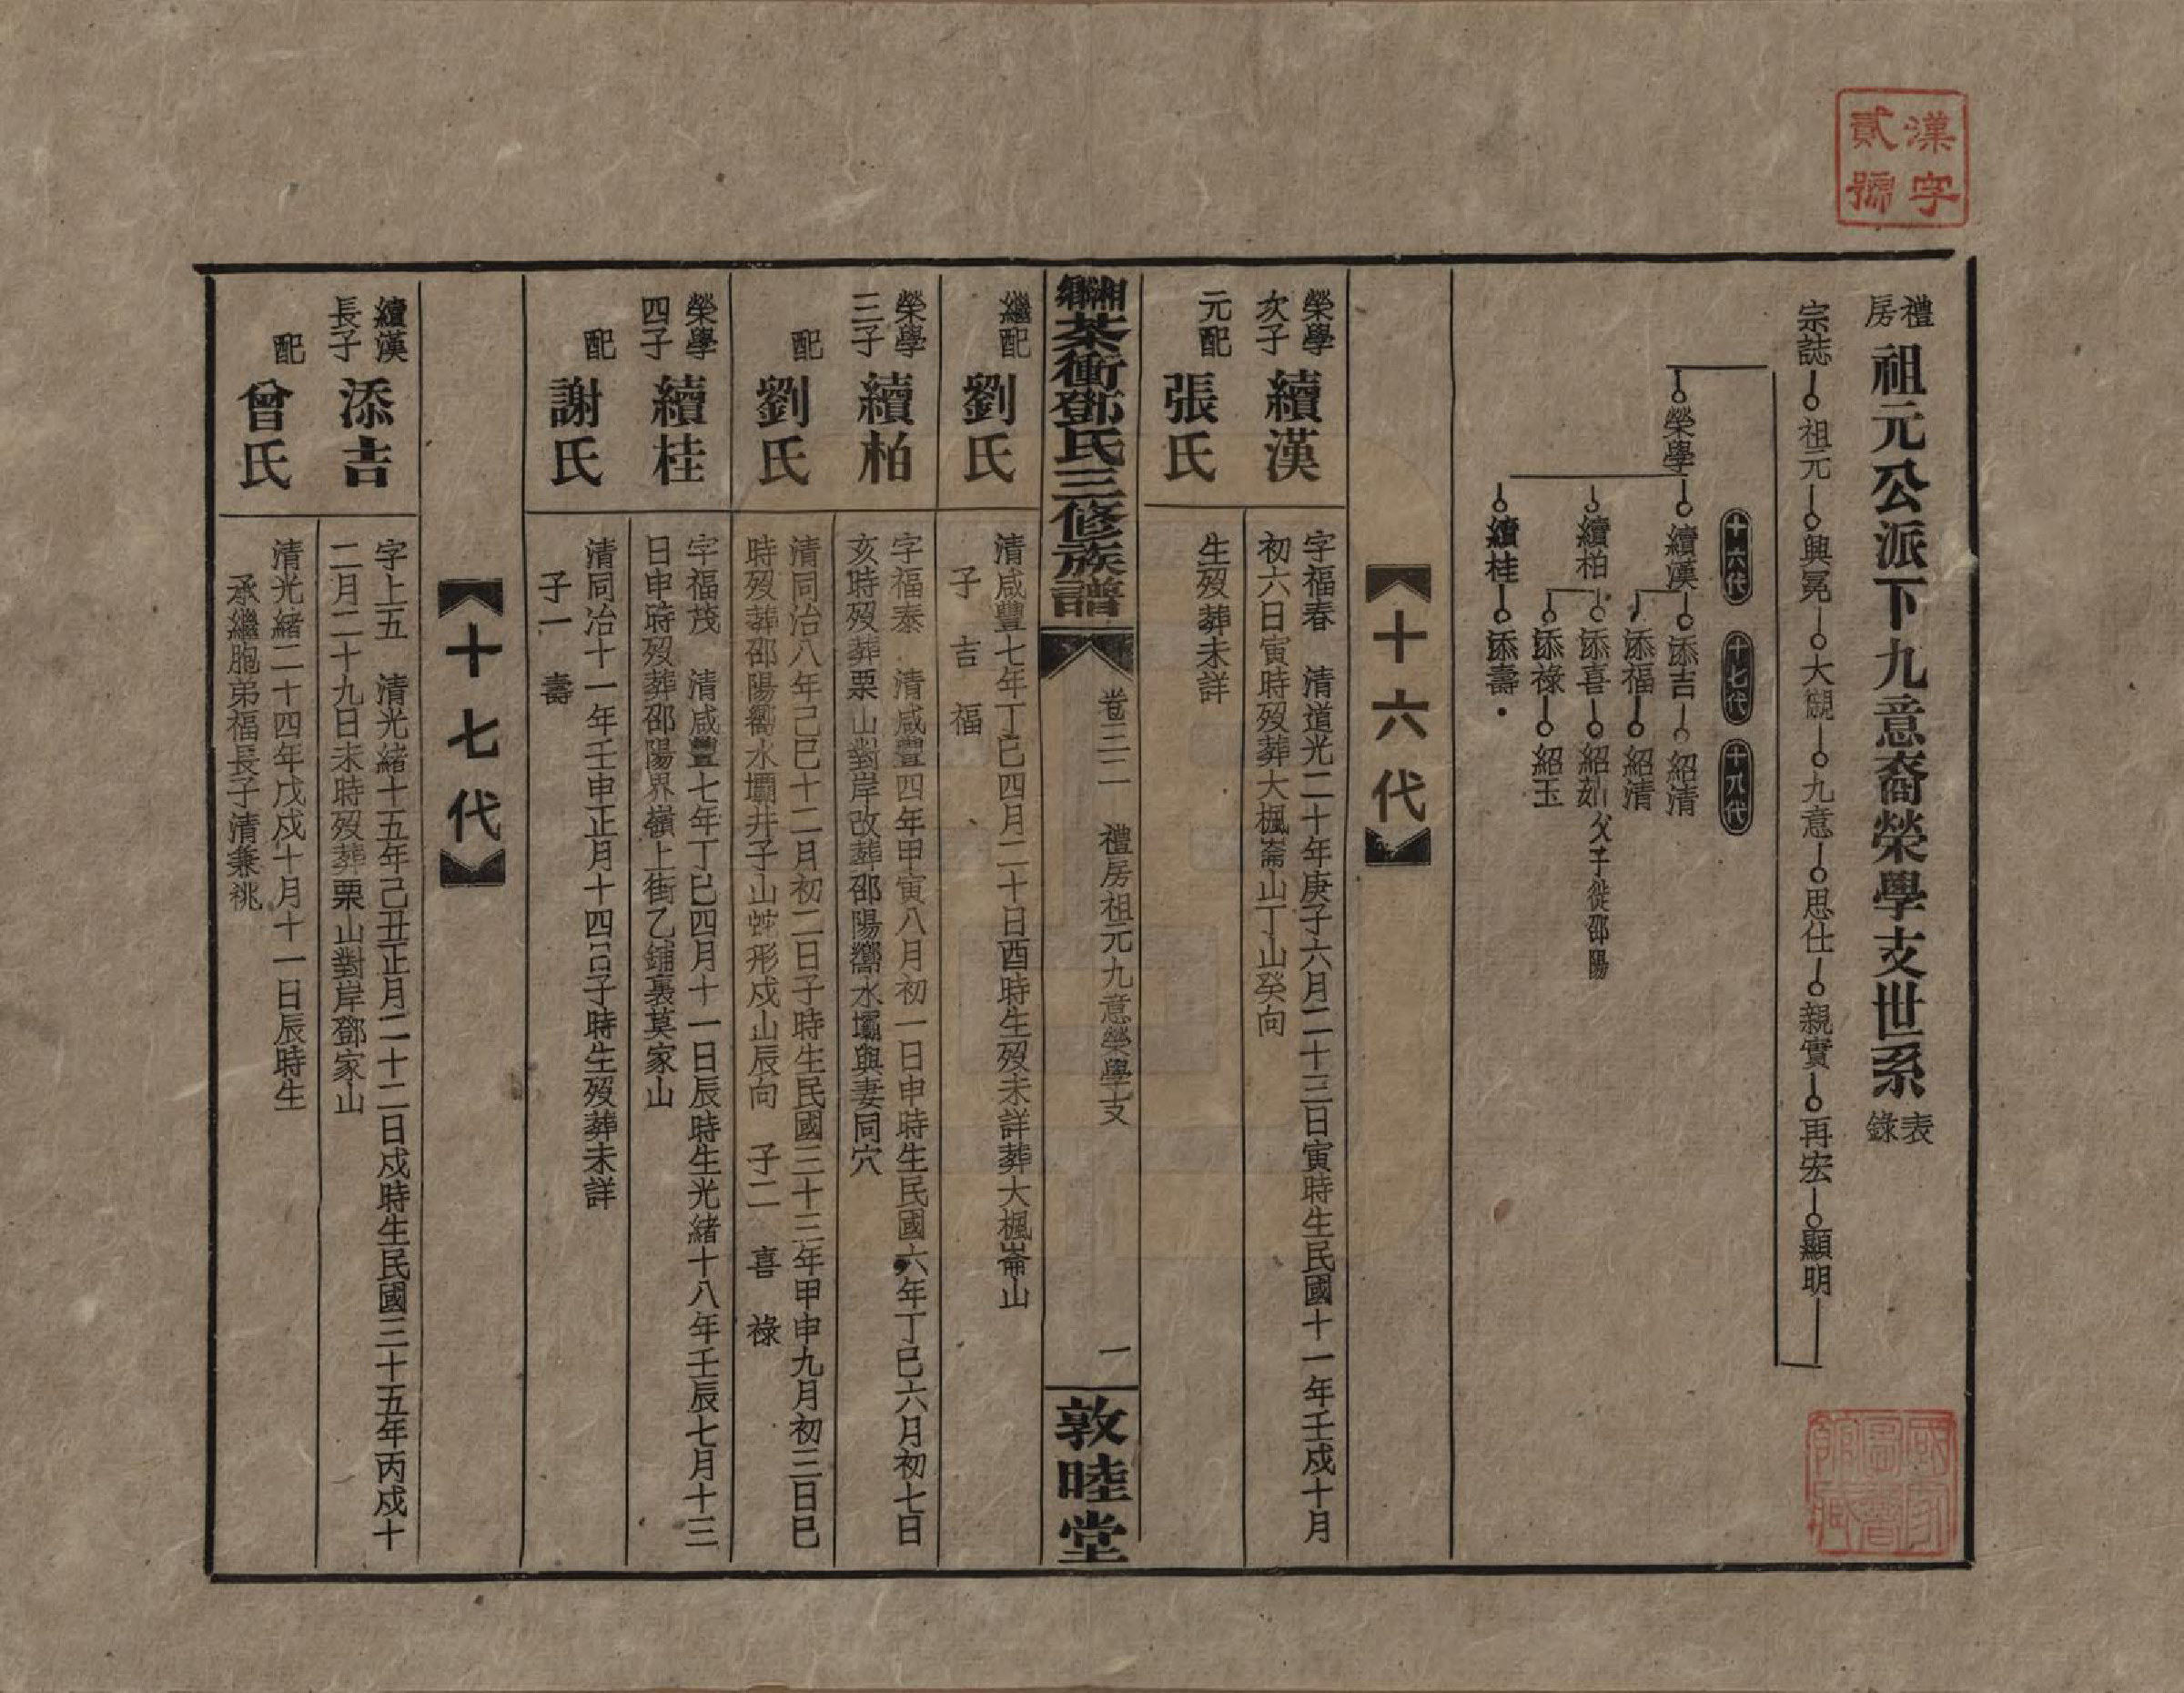 漢字
貳號
禮房 祖元公派下九意裔榮學支世系 表錄
宗誌 祖元 興冕 大觀 九意 思仕 親實 再宏 顯明
十六代 十七代 十八代
榮學
續漢 添吉 紹清
添福 紹清
續柏 添喜 紹 父子徙邵陽
添祿 紹玉
續桂 添壽
十六代
榮學次子 續漢
字福春 清道光二十年庚子六月二十三日寅時生民國十一年壬戍十月
初六日寅時歿葬大楓崙山丁山癸向
元配 張氏
生歿葬未詳
湘鄉茶衝鄧氏三修族譜
卷三二 禮房祖元九意榮學支
一
敦睦堂
繼配 劉氏
清咸豐七年丁巳四月二十日酉時生歿未詳葬大楓崙山
子 吉 福
榮學三子 續柏
字福泰 清咸豐四年甲寅八月初一日申時生民國六年丁巳六月初七日
亥時歿葬栗山對岸改葬邵陽衢水壩與妻同穴
配 劉氏
清同治八年己巳十二月初二日子時生民國三十三年甲申九月初三日巳
時歿葬邵陽衢水壩井子山形戍山辰向 子二 喜 祿
榮學四子 續桂
字福茂 清咸豐七年丁巳四月十一日辰時生光緒十八年壬辰七月十三
日申時歿葬邵陽界嶺上街乙鋪裏莫家山
配 謝氏
清同治十一年壬申正月十四日子時生歿葬未詳
子一 壽
十七代
續漢長子 添吉
字上五 清光緒十五年己丑正月二十二日戍時生民國三十五年丙戍十
二月二十九日未時歿葬栗山對岸鄧家山
配 曾氏
清光緒二十四年戊戍十月十一日辰時生
承繼胞弟福長子清兼祧
國家圖書館藏